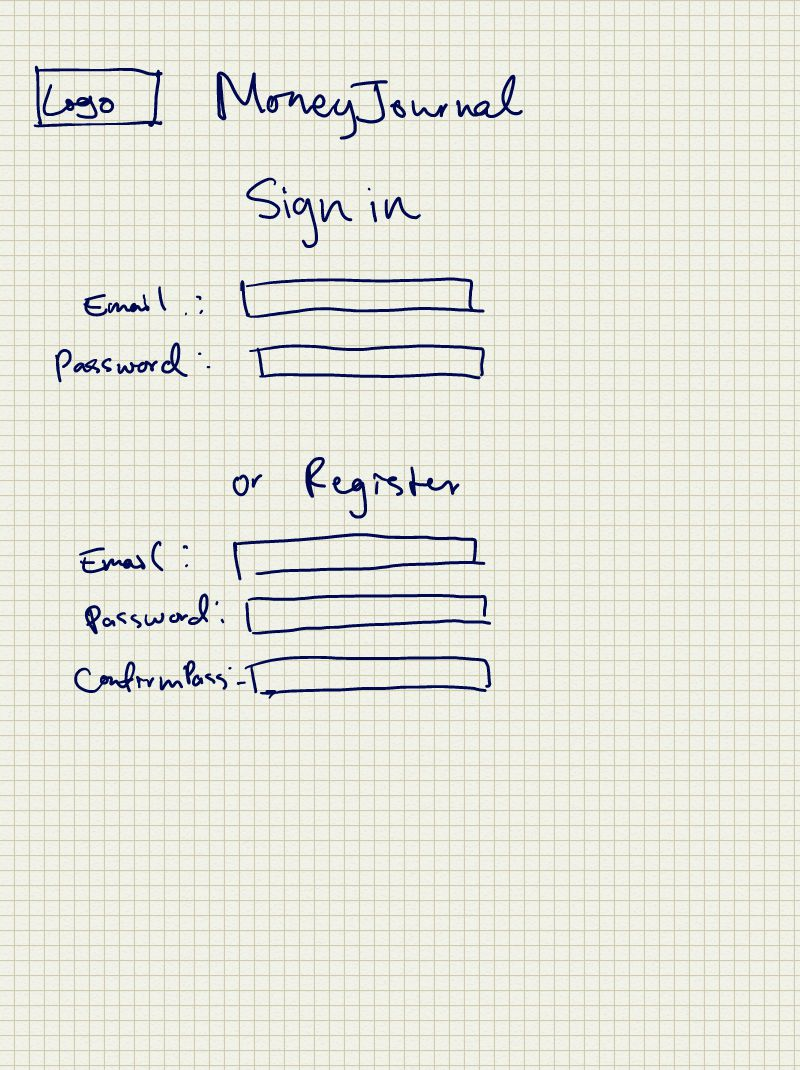 Logo MoneyJournal
Sign in
Email :
Password :
or Register
Email :
Password :
ConfirmPass :